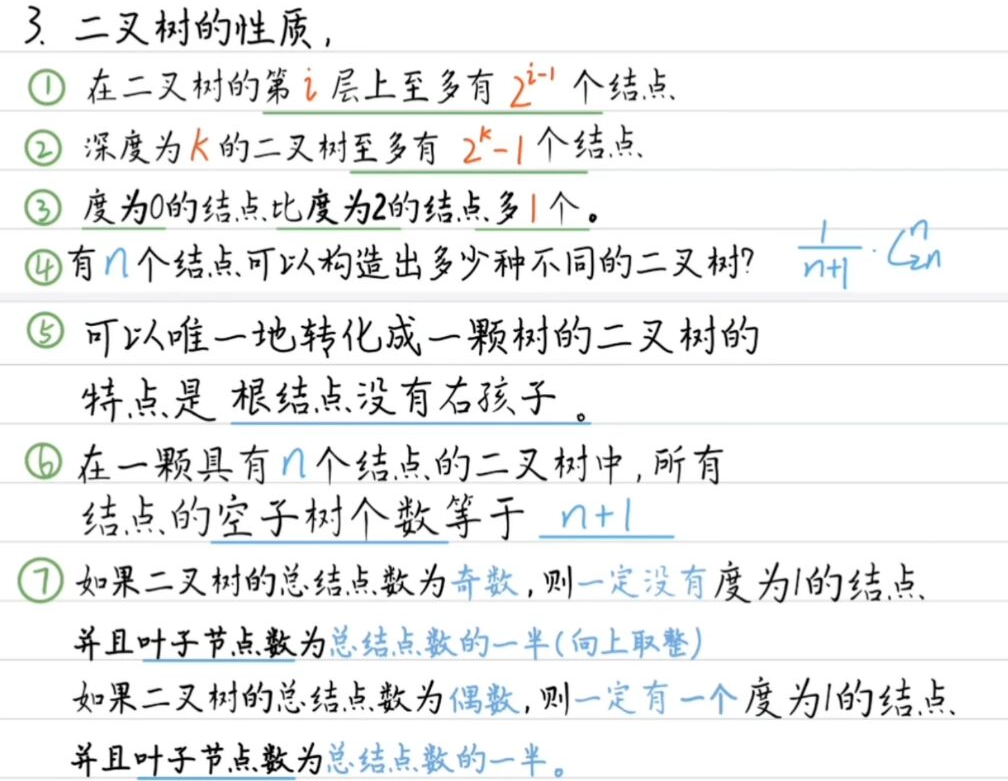 3. 二叉树的性质,
① 在二叉树的第 i 层上至多有 2^{i-1} 个结点
② 深度为 k 的二叉树至多有 2^k-1 个结点
③ 度为0的结点比度为2的结点多1个。
④ 有n个结点可以构造出多少种不同的二叉树? \frac{1}{n+1}·C_{2n}^{n}
⑤ 可以唯一地转化成一颗树的二叉树的
特点是 根结点没有右孩子。
⑥ 在一颗具有n个结点的二叉树中,所有
结点的空子树个数等于 n+1
⑦ 如果二叉树的总结点数为奇数,则一定没有度为1的结点
并且叶子节点数为总结点数的一半(向上取整)
如果二叉树的总结点数为偶数,则一定有一个度为1的结点
并且叶子节点数为总结点数的一半。